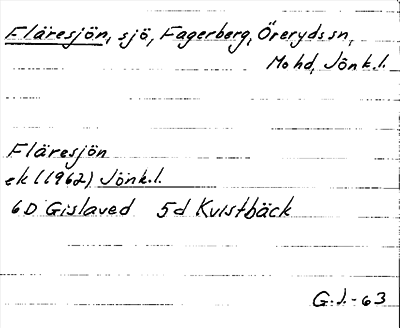 Fläresjön, sjö, Fagerberg, Öreryds sn,
Mo hd, Jönk.l.
Fläresjön
ek (1962) Jönk.l.
6D Gislaved 5d Kvistbäck
G.J.-63